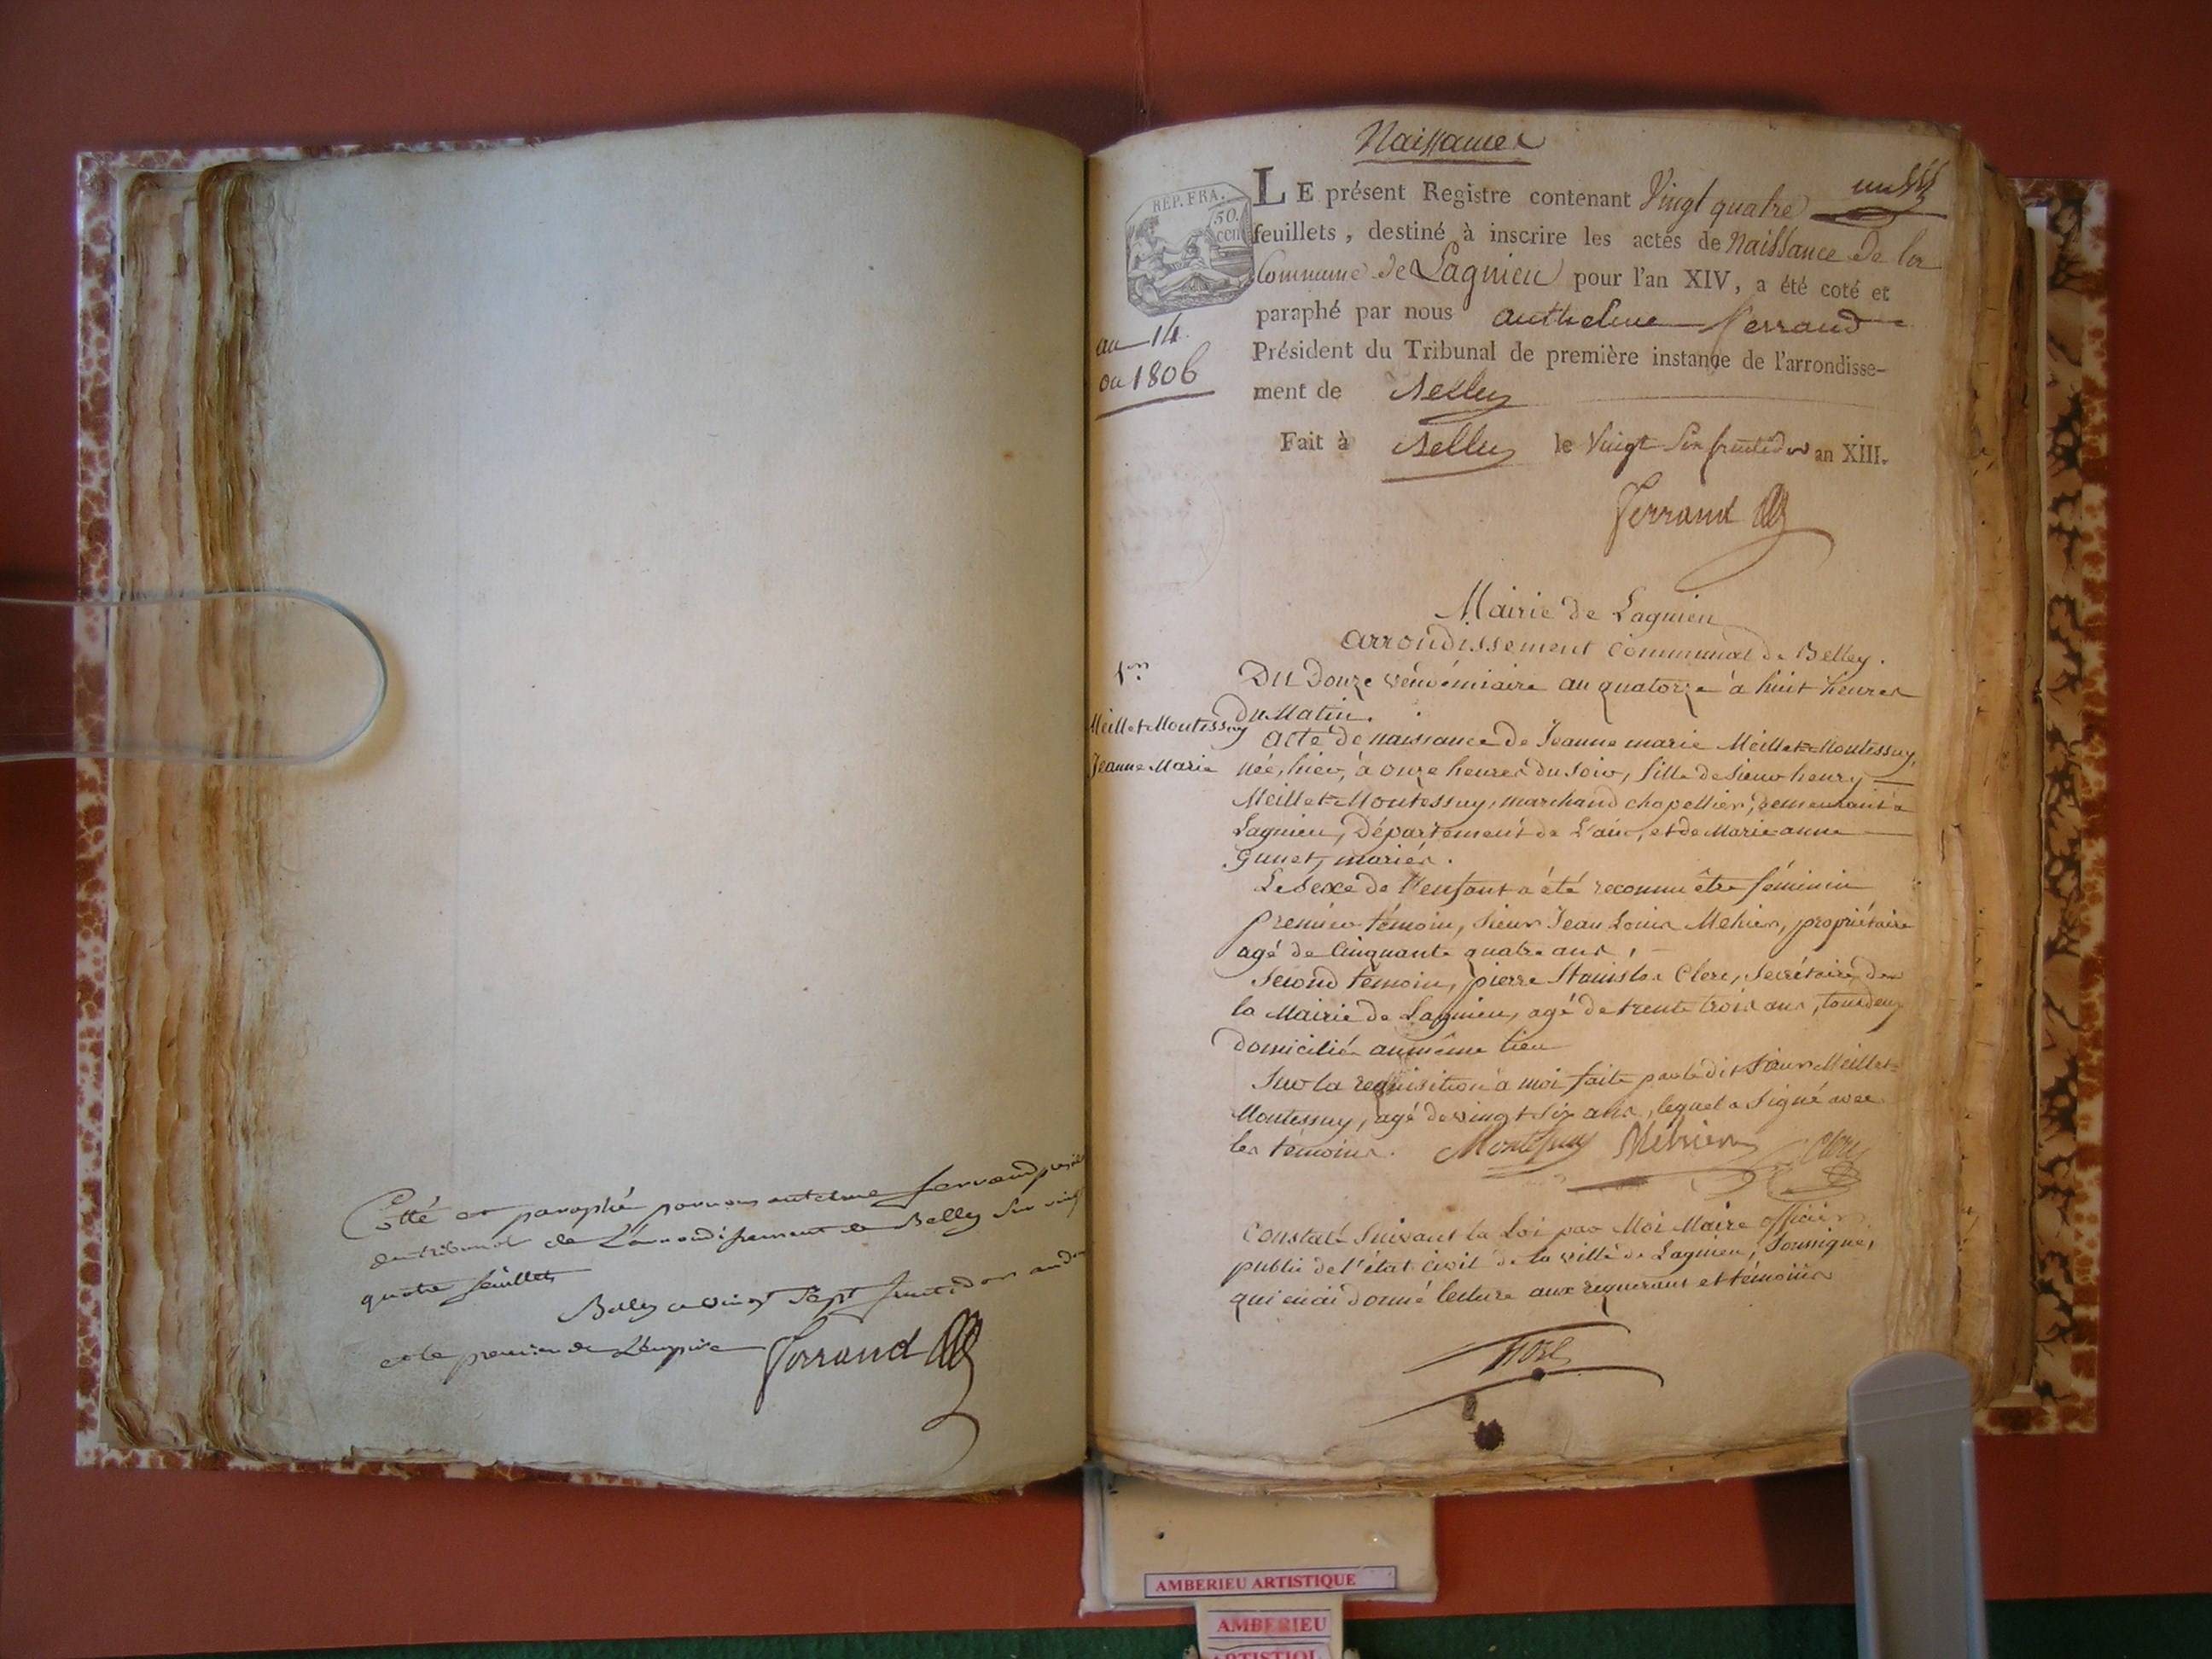 Cotté et paraphé par nous antelme ferrand président
du tribunal de L'arrondissement de Belley Sur vingt
quatre feuillets
Belley ce vingt Sept fructidor an
et le premier de L'empire Ferrand
Naissances
REP. FRA.
50.
cen
LE présent Registre contenant Vingt quatre
feuillets, destiné à inscrire les actes de Naissance de la
Commune de Lagnieu pour l'an XIV, a été coté et
paraphé par nous anthelme ferrand
Président du Tribunal de première instance de l'arrondisse-
ment de Belley
Fait à Belley le Vingt Six fructidor an XIII.
Ferrand
an 14
ou 1806
Mairie de Lagnieu
arrondissement Communal de Belley.
1er
Du Douze vendémiaire an quatorze à huit heures
du Matin.
Meillet-Montessuy
Jeanne Marie
Acte de naissance de Jeanne marie Meillet-Montessuy,
née, hier, à onze heures du soir, fille de sieur henry
Meillet-Montessuy, marchand chapellier, demeurant à
Lagnieu, Département de L'ain, et de Marie anne
Gunet, mariés.
Le sexe de l'enfant a été reconnu être féminin
premier témoin, sieur Jean Louis Mehier, propriétaire
agé de Cinquante quatre ans,
Second témoin, pierre Stanislas Clerc, secrétaire de
la Mairie de Lagnieu, agé de trente trois ans, tous deux
domiciliés au même lieu
Sur la requisition à moi faite par le dit sieur Meillet-
Montessuy, agé de vingt six ans, lequel a signé avec
les témoins. Montessuy Mehier Clerc
Constaté Suivant la Loi par Moi Maire officier
public de l'état civil de la ville de Lagnieu, Soussigné,
qui en ai donné lecture aux requerant et témoins
AMBERIEU ARTISTIQUE
AMBERIEU
ARTISTIQU